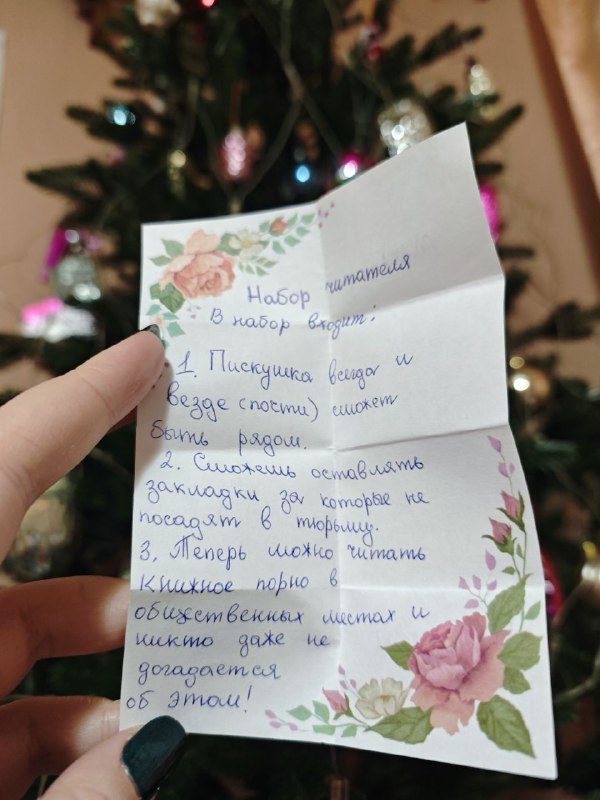 Набор читателя
В набор входит:
1. Пискушка всегда и
везде (почти) сможет
быть рядом.
2. Сможешь оставлять
закладки за которые не
посадят в тюрьму.
3. Теперь можно читать
книжное порно в
общественных местах и
никто даже не
догадается
об этом!